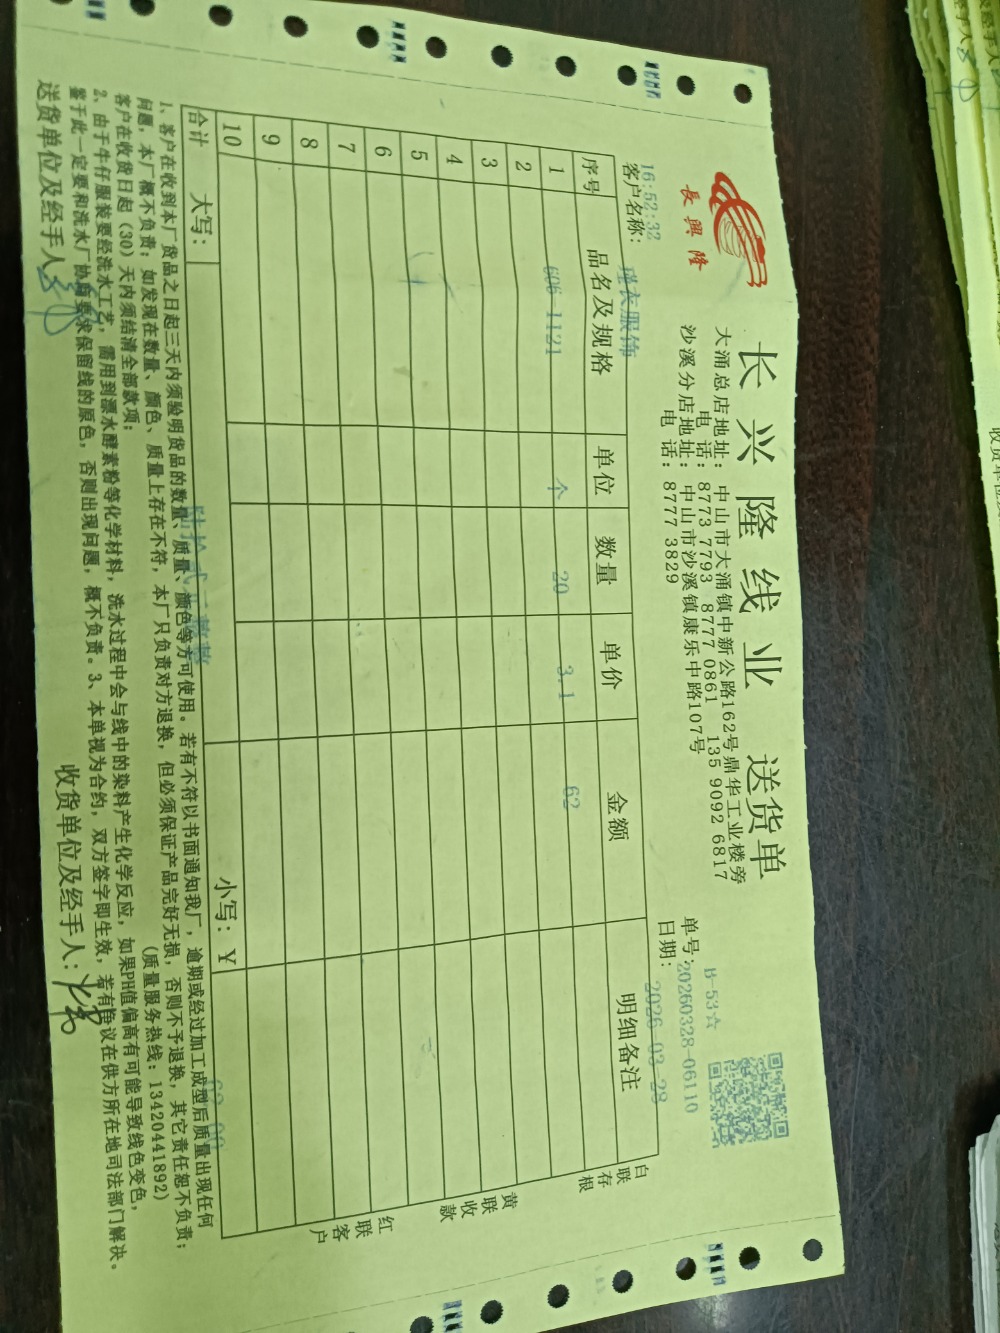 長興隆
长兴隆线业 送货单
大涌总店地址：中山市大涌镇中新公路162号鼎华工业楼旁
电话：8773 7793 8777 0861 135 9092 6817
沙溪分店地址：中山市沙溪镇康乐中路107号
电话：8777 3829
B-53☆
单号:20260328-06110
日期：2026-03-28
16:52:32
客户名称：瑾衣服饰
序号 品名及规格 单位 数量 单价 金额 明细备注
1 606 1121 个 20 3.1 62
2
3
4
5
6
7
8
9
10
合计 大写：陆拾贰元整 小写：￥ 62.00
白联存根
黄联收款
红联客户
1、客户在收到本厂货品之日起三天内须验明货品的数量、质量、颜色等方可使用。若有不符以书面通知我厂，逾期或经过加工成型后质量出现任何
问题，本厂概不负责；如发现在数量、颜色、质量上存在不符，本厂只负责对方退换，但必须保证产品完好无损，否则不予退换，其它责任恕不负责；
客户在收货日起（30）天内须结清全部款项； （质量服务热线：13420441892）
2、由于牛仔服装要经洗水工艺，需用到漂水酵素粉等化学材料，洗水过程中会与线中的染料产生化学反应，如果PH值偏高有可能导致线色变色，
鉴于此一定要和洗水厂协商要求保留线的原色，否则出现问题，概不负责。3、本单视为合约，双方签字即生效，若有争议在供方所在地司法部门解决。
送货单位及经手人： 收货单位及经手人：